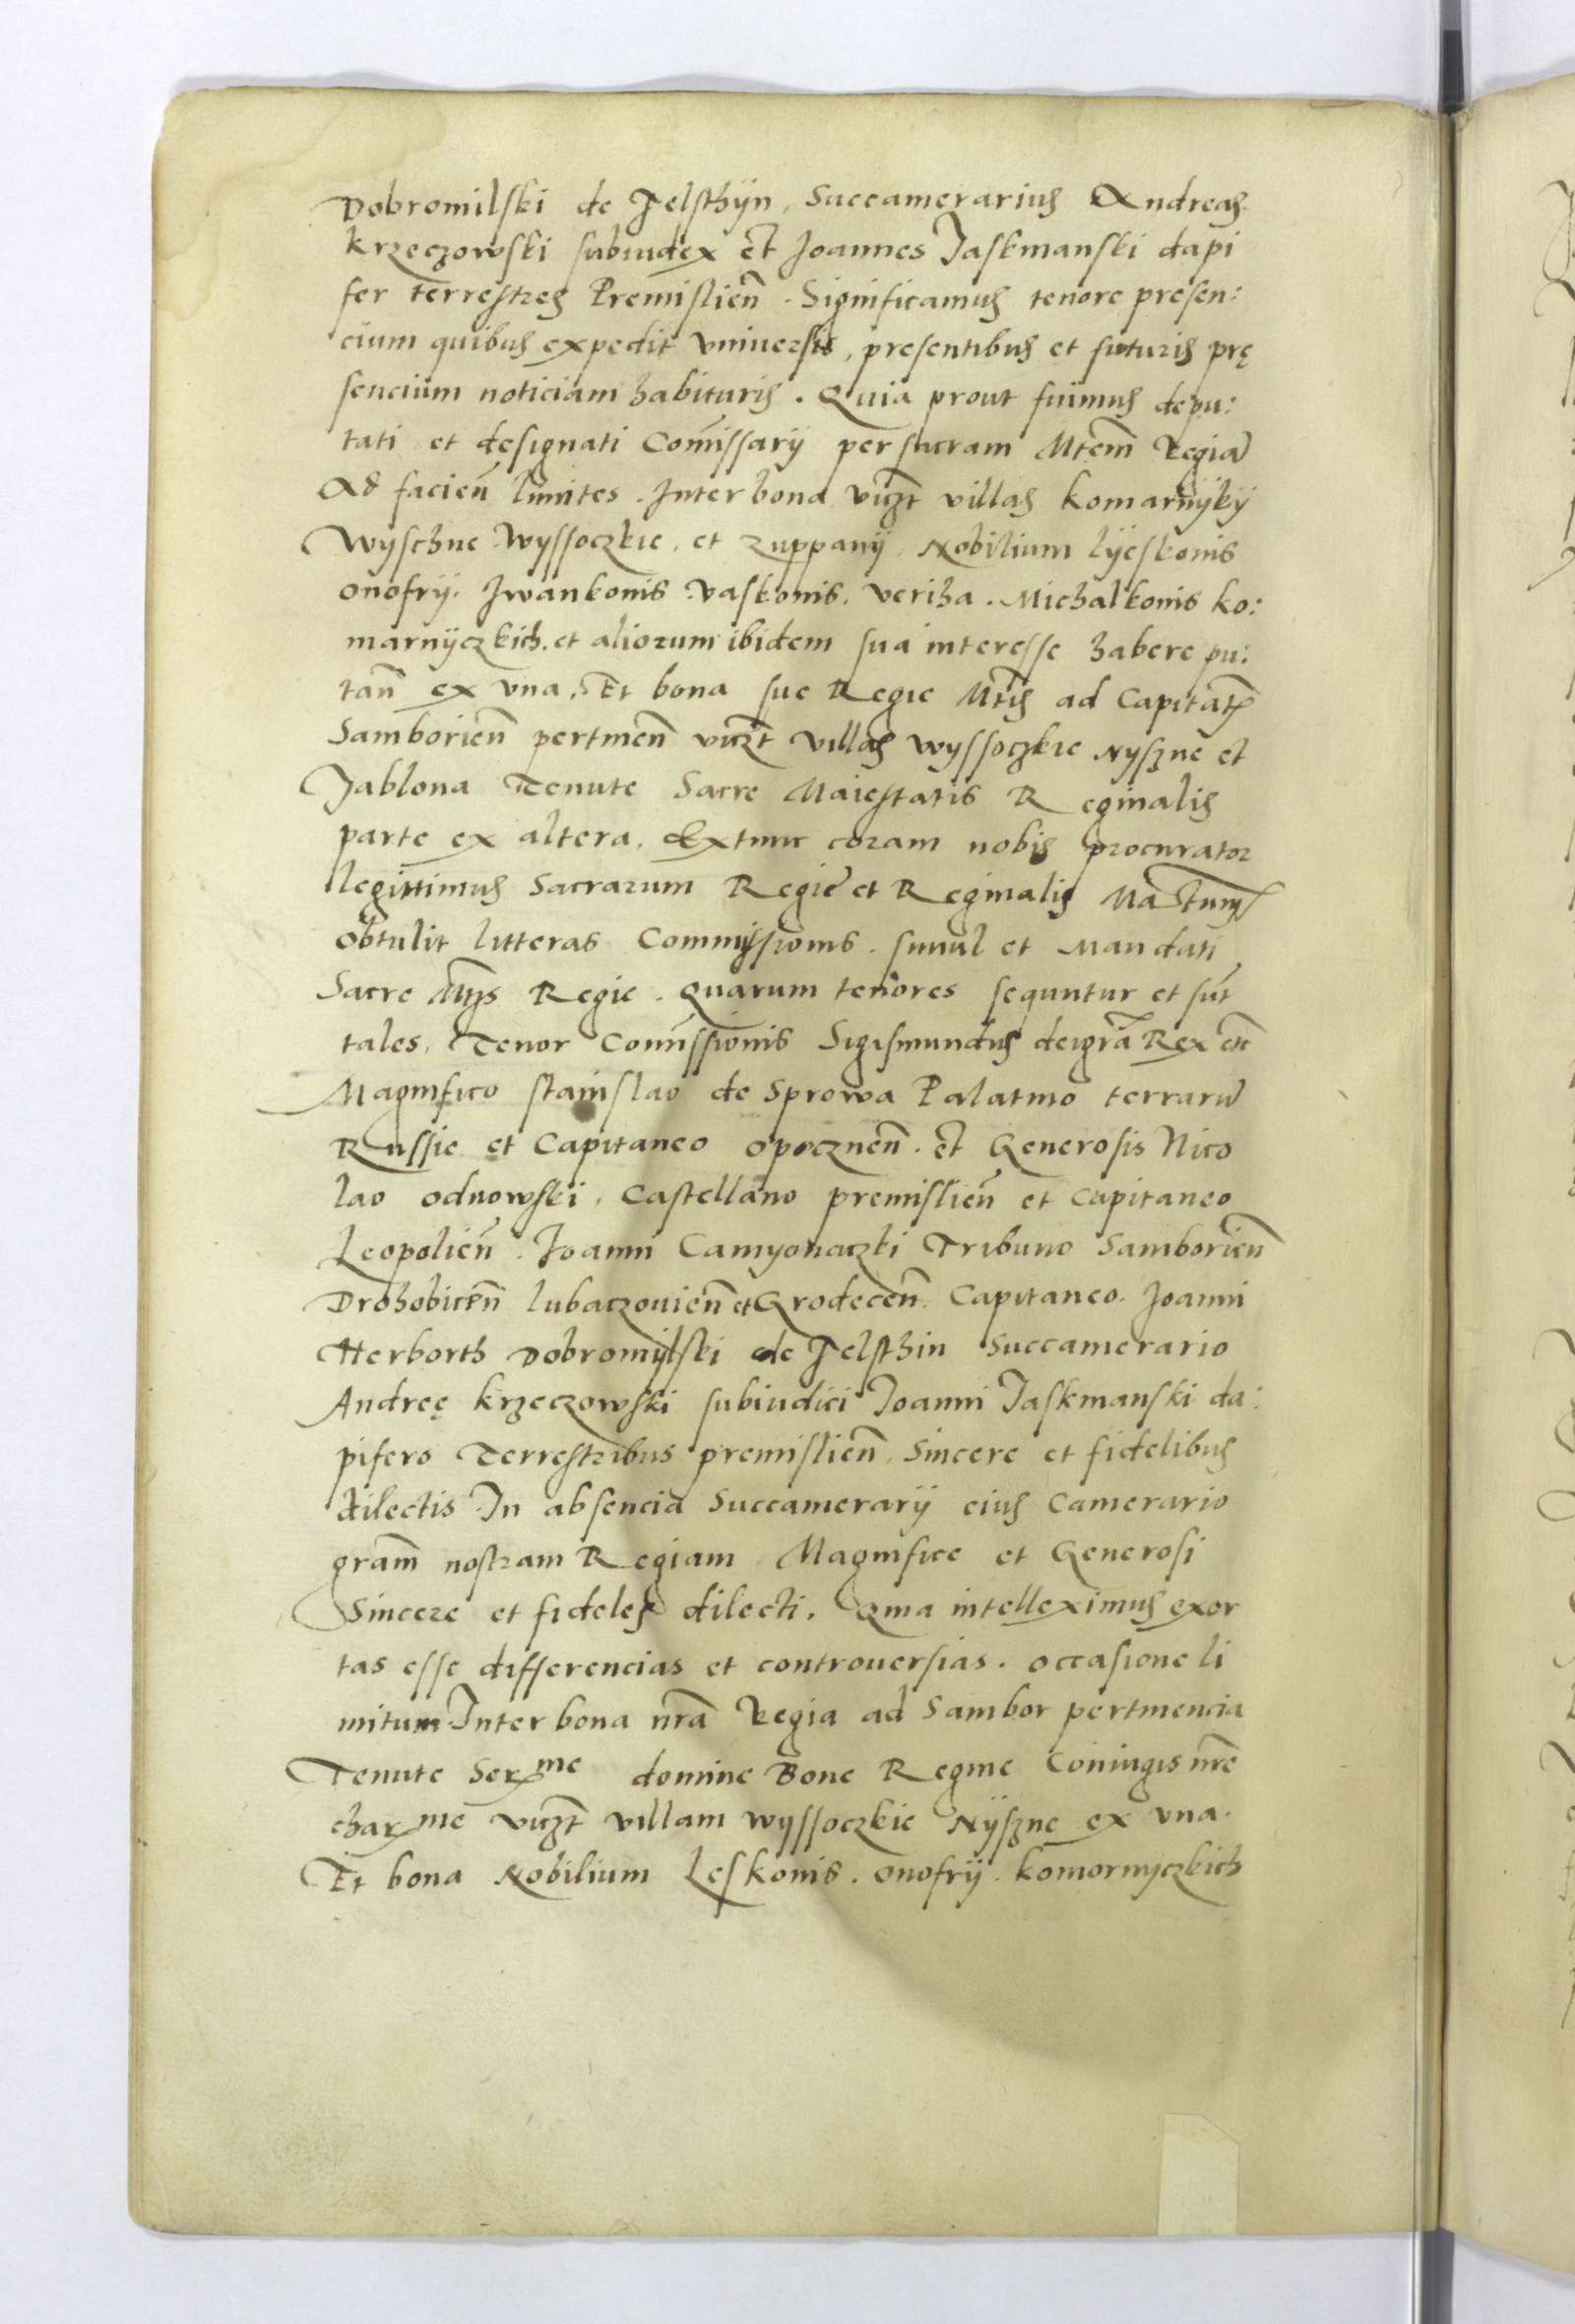 Dobromilski de Felsthÿn, Succamerarius Andreas
krzeczowski subiudex et Joannes Jaskmanski dapi
fer terrestres Premislien̄. Significamus tenore presen:
cium quibus expedit vniuersis, presentibus et futuris prę
sencium noticiam habituris. Quia prout fuimus depu:
tati et designati Com̄issarÿ per sacram Mtem̄ Regiā
Ad facien̄ limites. Inter bona viczt villas komarnÿkÿ
Wyschne Wyssoczkie, et zuppanÿ, Nobilium lÿeskonis
onofrÿ. Jwankonis. vaskonis. veriha. Michalkonis ko:
marnÿczkich. et aliorum ibidem sua interesse habere pu:
tan̄ ex vna. Et bona sue Regie Mtis̄ ad Capitat
Samborien̄ pertinen̄ viczt villas wyssoczkie Nyszne et
Jablona Tenute Sacre Maiestatis Reginalis
parte ex altera. Extunc coram nobis procurator
legittimus Sacrarum Regie et Reginalis Ma
obtulit litteras Commissionis. simul et Mandati
Sacre Mtis Regie. Quarum tenores sequntur et sūt
tales. Tenor Com̄issionis Sigismundus deigrā Rex etc̄
Magnifico stanislao de Sprowa Palatino terrarū
Russie et Capitaneo opocznen̄. et Generosis Nico
lao odnowski. Castellano premislien̄ et Capitaneo
Leopolien̄. Joanni Camyonaczki Tribuno Samborien̄
Drohobicen̄ lubaczouien̄ et Grodecen̄. Capitaneo. Joanni
Herborth Dobromÿlski de Felsthin Succamerario
Andreę krzeczowski subiudici Joanni Jaskmanski da:
pifero Terrestribus premislien̄. Sincere et fidelibus
dilectis In absencia Succamerarÿ eius Camerario
gram̄ nostram Regiam. Magnifice et Generosi
Sincere et fideles dilecti. Quia intelleximus exor
tas esse differencias et controuersias. occasione li
mitum Inter bona nrā Regia ad Sambor pertinencia
Tenute Serme domine Bone Regine Coniugis nrē
charme viczt villam wyssoczkie Nÿszne ex vna.
Et bona Nobilium Leskonis. onofrÿ. komornyczkich